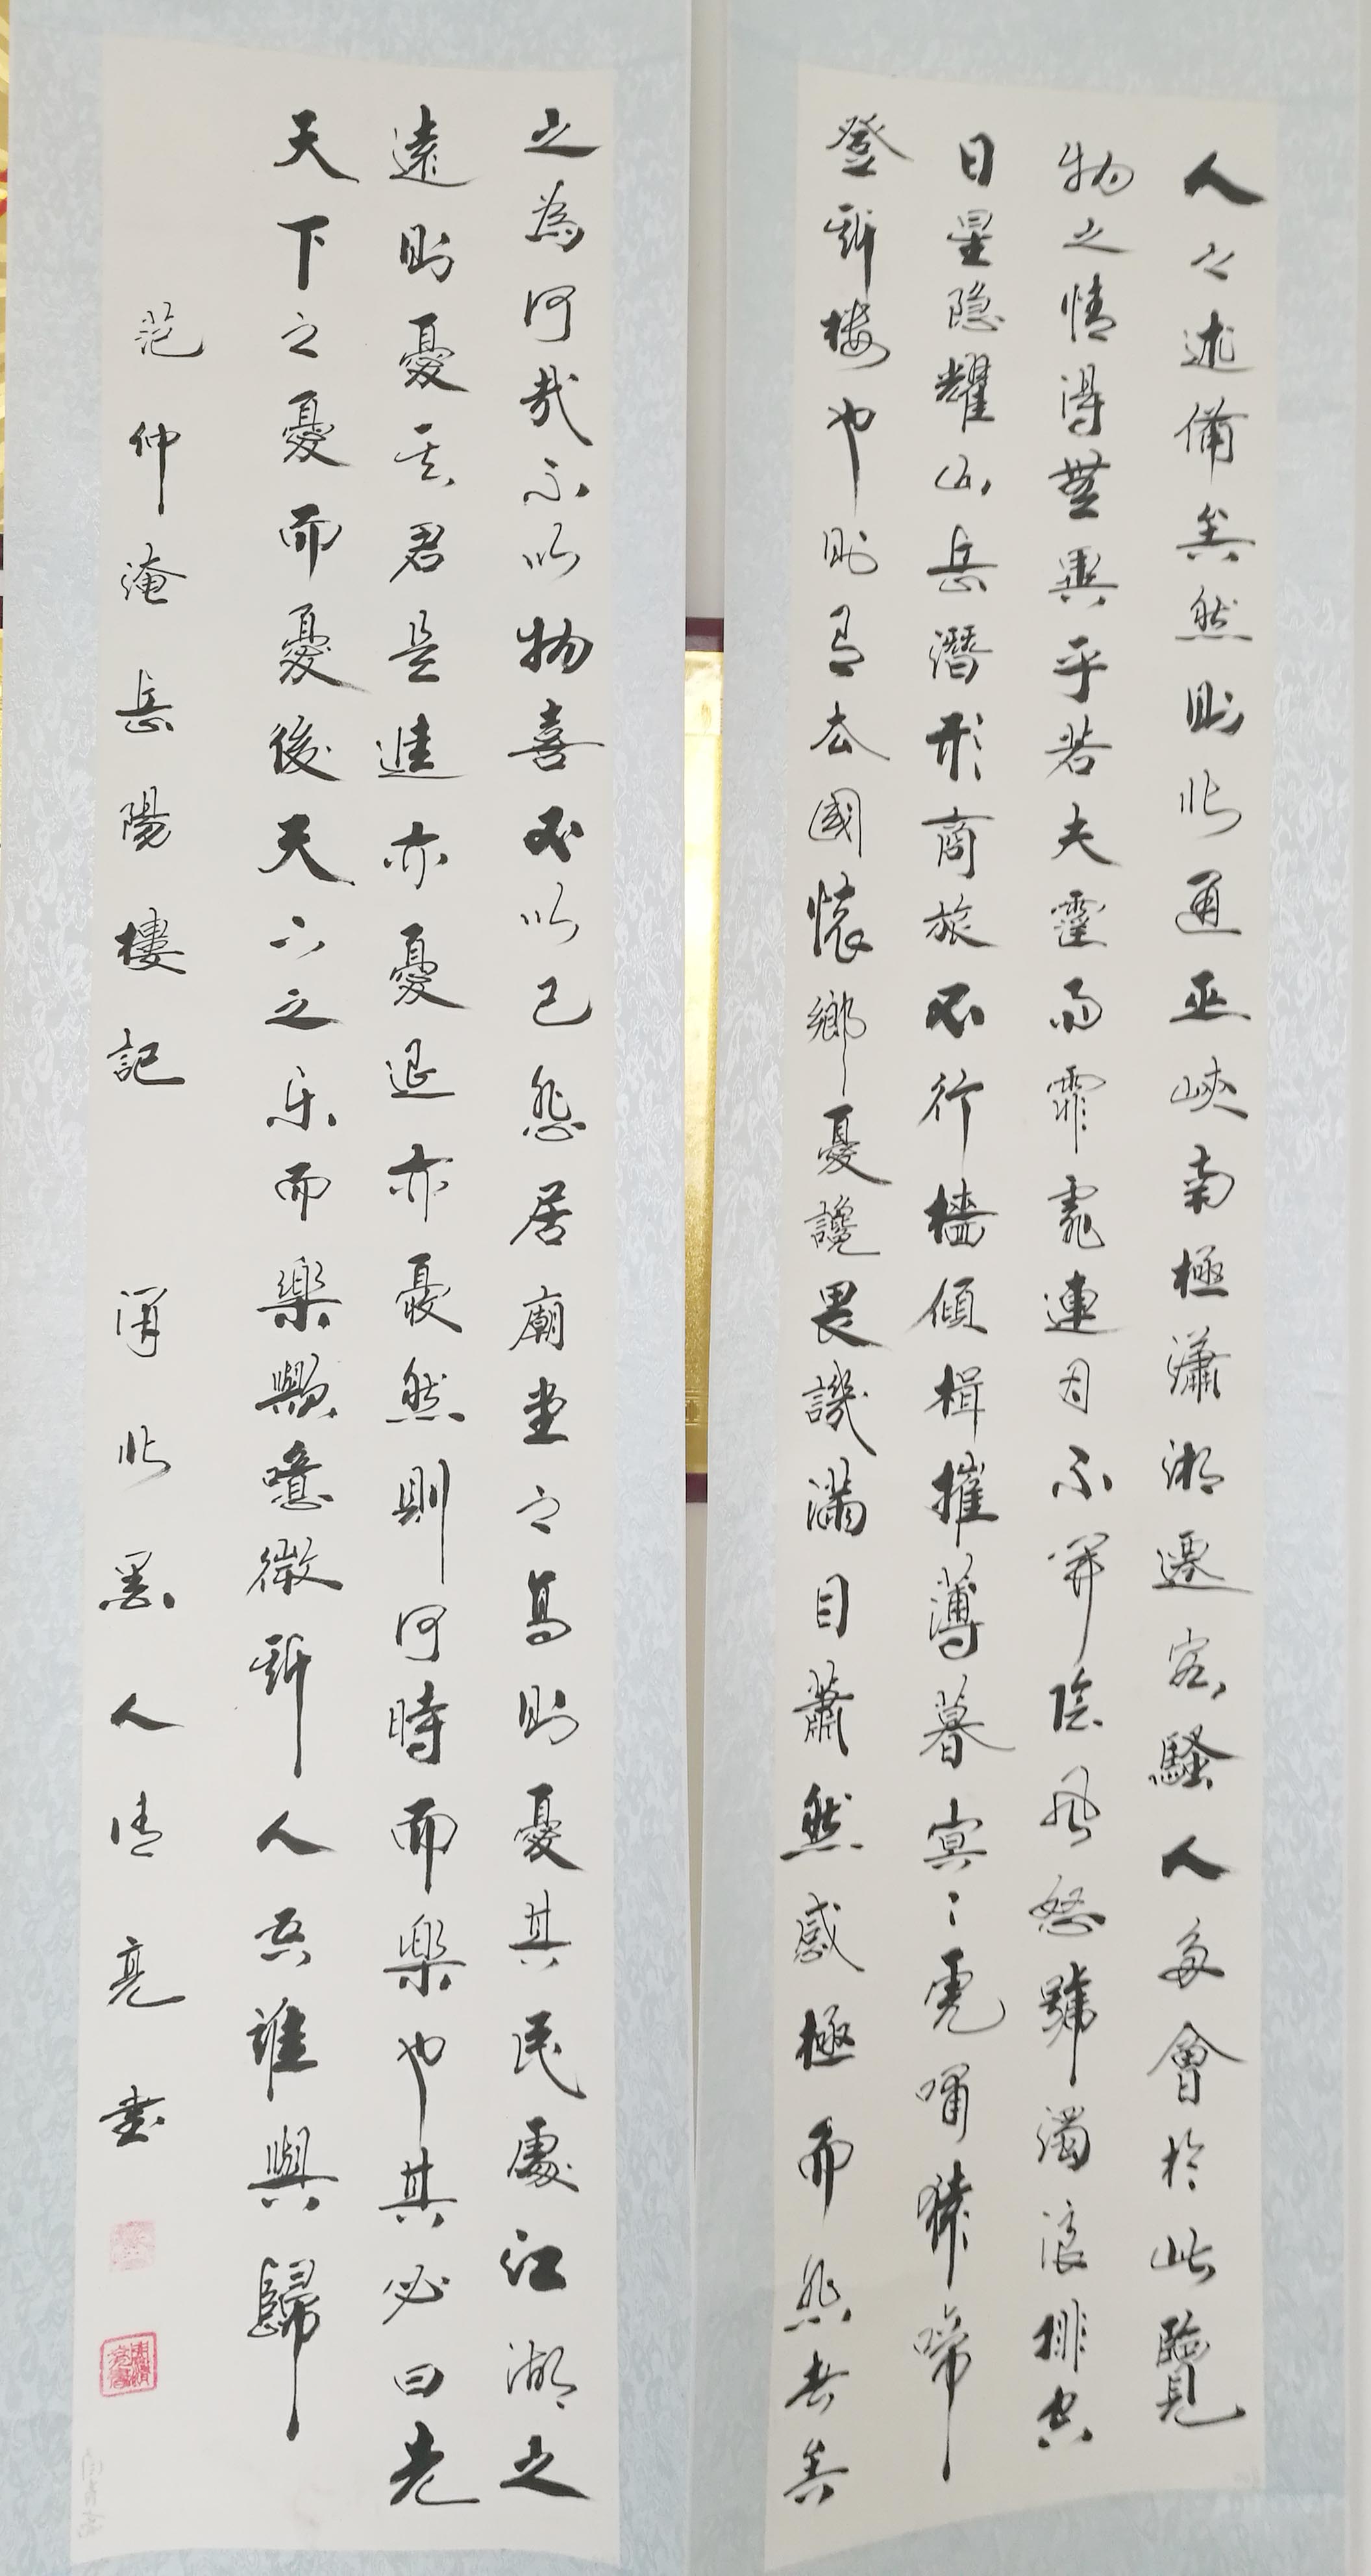 人之述備矣然則北通巫峽南極瀟湘遷客騷人多會於此覽
物之情得無異乎若夫霪雨霏霏連月不開陰風怒號濁浪排空
日星隐耀山岳潛形商旅不行檣傾楫摧薄暮冥冥虎嘯猿啼
登斯楼也則有去國懷鄉憂讒畏譏滿目蕭然感極而悲者矣
之為何哉不以物喜不以己悲居廟堂之高則憂其民處江湖之
遠則憂其君是進亦憂退亦憂然則何時而樂也其必曰先
天下之憂而憂後天下之乐而樂歟噫微斯人吾誰與歸
范仲淹岳陽樓記 浦北寨人清亮書